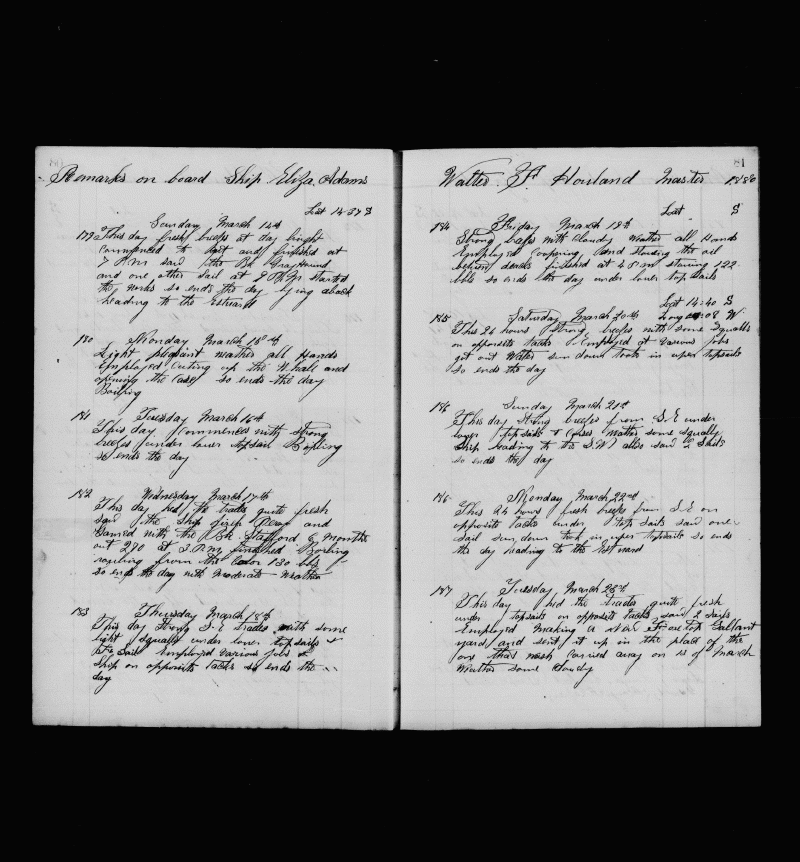 Remarks on board Ship Eliza Adams
Lat 14-37 S
Sunday March 14th
179 This day fresh breeses at day light
commenced to cut and finished at
7 P.M. said the Bk Gray Hound
and one other sail at 9 P.M. started
the works so ends the day lying aback
heading to the
180 Monday March 15th
Light pleasant weather all Hands
Employed Cuting up the Whall and
opening the Case so ends the day
Boilling
181 Tuesday March 16th
This day Commences with strong
breeses under lower topsail Boiling
so ends the day
182 Wednesday March 17th
This day hed the trades quite fresh
said the Ship and
Gamed with the Bk Stafford 6 Months
out 290 at 3 P.M. finished Boiling
from the 130 bbls
so ends the day with moderate weather
183 Thursday March 18th
This day strong S.E trades with some
light squalls under lower topsails &
Fore Sail employed various Jobs &
Ship on opposite tacks so ends the
day
Walter Howland master 1880
Lat S
184 Friday March 19th
Strong breeses with cloudy weather all Hands
Employed Coopering and stowing the oil
between decks finished at 4 P.M. stowing 122
bbls so ends the day under lower top sails
Lat 14:40 S
185 Saturday March 20th Long :08 W
This 24 hours strong breeses with some squalls
on opposite tacks Employed at various jobs
got out Water sun down took in uper topsails
so ends the day
186 Sunday March 21st
This day strong breeses from S.E under
lower topsails & weather some squally
Ship heading to the S.W allso said 2 Sails
so ends the day
186 Monday March 22nd
This 24 hours fresh breeses from S.E on
opposite tacks under top sails said one
sail sun down took in uper topsails so ends
the day heading to the Est ward
187 Tuesday March 23rd
This day hed the trades quite fresh
under topsails on opposite tacks said 2 Sails
Employed making a new Fore top Gallant
yard and sent it up in the place of the
one that was Carried away on 12 of March
Weather some Cloudy